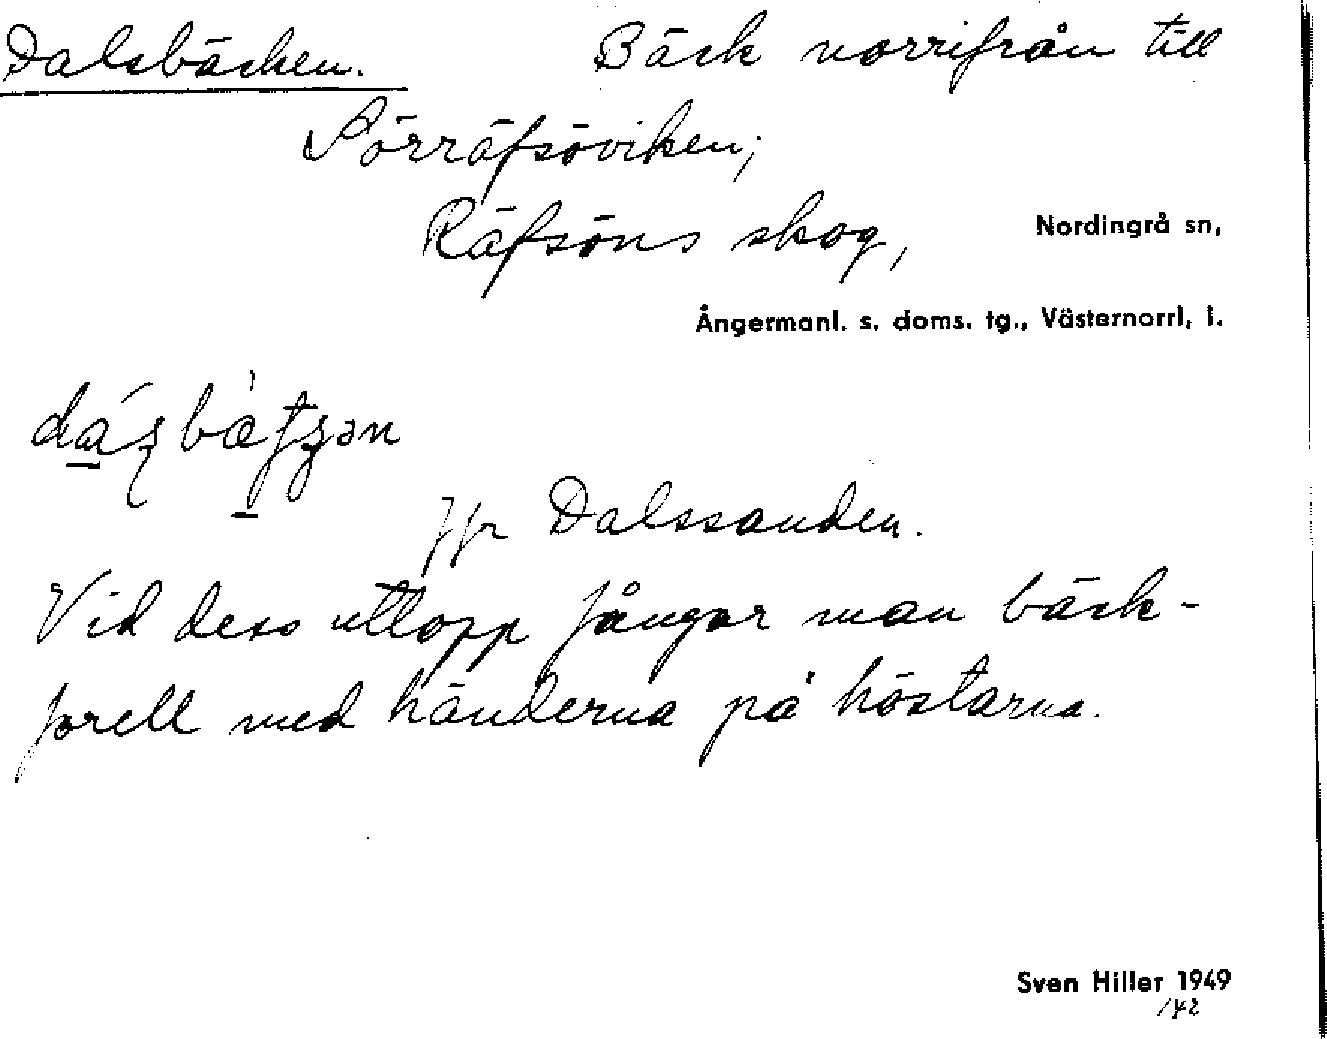 Dalsbäcken. Bäck norrifrån till
Sörräfsöviken;
Räfsöns skog, Nordingrå sn,
Ångermanl. s. doms. tg., Västernorrl. l.
Jfr Dalssanden.
Vid dess utlopp fångar man bäck-
forell med händerna på höstarna.
Sven Hiller 1949
142